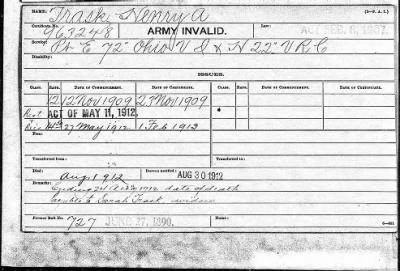 NAME: Trask, Henry A (3-P. A. I.)
Certificate No. 963248 ARMY INVALID. Law: ACT FEB. 6, 1907.
Service: Pv. E 72" Ohio V I & H 22" V R C
Disability:
ISSUES.
CLASS. RATE. DATE OF COMMENCEMENT. DATE OF CERTIFICATE. CLASS. RATE. DATE OF COMMENCEMENT. DATE OF CERTIFICATE.
12 12 Nov 1909 27 Nov 1909
ACT OF MAY 11, 1912.
27 May 1912 1 Feb 1913
Transferred from:
Transferred to:
Died: Aug 1912 Bureau notified: AUG 30 1912
Remarks: Ending 1912 date of death
Sarah Trask widow
Former Roll No. 727 JUNE 27, 1890. Home: